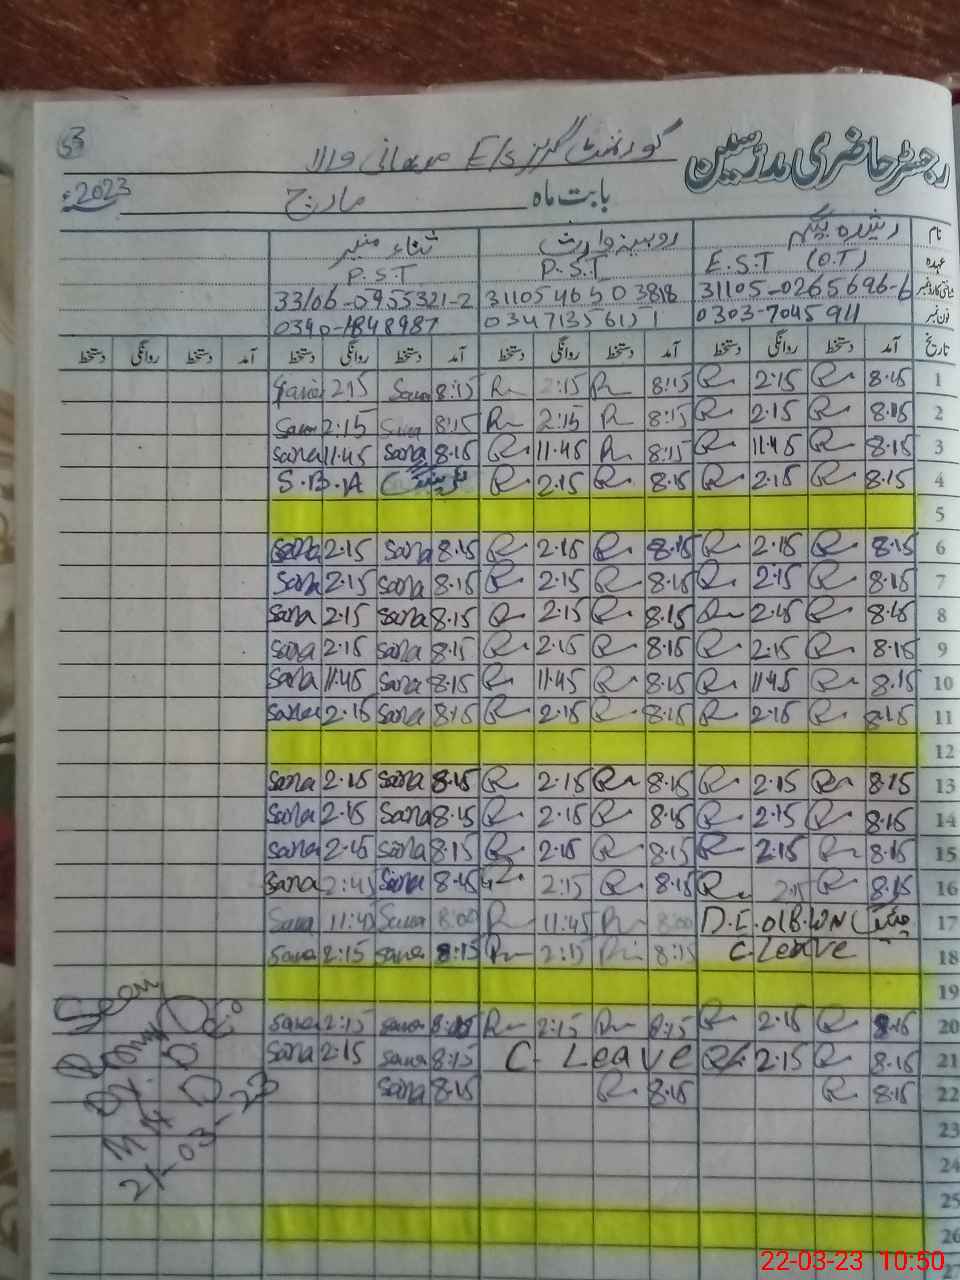 53
رجسٹر حاضری مدرسین گورنمنٹ گرلز E/s والا
بابت ماہ مارچ 2023ء
نام رشیدہ بیگم روبینہ وارث ثناء منیر
عہدہ E.S.T (O.T) P.S.T P.S.T
شناختی کارڈ نمبر 31105-0265696-6 3110546503818 33106-0955321-2
فون نمبر 0303-7045911 03471356151
تاریخ آمد دستخط روانگی دستخط آمد دستخط روانگی دستخط آمد دستخط روانگی دستخط آمد دستخط روانگی دستخط
1 8.15 R 2.15 R 8:15 R 2:15 R 8:15 Sana 2:15 Sana
2 8.15 R 2.15 R 8:15 R 2:15 R 8:15 Sana 2:15 Sana
3 8.15 R 11.45 R 8:15 R 11.45 R 8.15 Sana 11.45 Sana
4 8.15 R 2.15 R 8.15 R 2.15 R S.B.A
5
6 8.15 R 2.15 R 8.15 R 2.15 R 8.15 Sana 2.15 Sana
7 8.15 R 2.15 R 8.15 R 2.15 R 8.15 Sana 2.15 Sana
8 8.15 R 2.15 R 8.15 R 2.15 R 8.15 Sana 2.15 Sana
9 8.15 R 2.15 R 8.15 R 2.15 R 8.15 Sana 2.15 Sana
10 8.15 R 11.45 R 8.15 R 11.45 R 8.15 Sana 11.45 Sana
11 8.15 R 2.15 R 8.15 R 2.15 R 8.15 Sana 2.15 Sana
12
13 8.15 R 2.15 R 8.15 R 2.15 R 8.15 Sana 2.15 Sana
14 8.15 R 2.15 R 8.15 R 2.15 R 8.15 Sana 2.15 Sana
15 8.15 R 2.15 R 8.15 R 2.15 R 8.15 Sana 2.15 Sana
16 8.15 R 2.15 R 8.15 R 2:15 R Sana Sana
17 میٹنگ D.E.O 8:00 R 11:45 R 8:00 Sana 11:45 Sana
18 C.Leave 8:15 R 2:15 R 8:15 Sana 2:15 Sana
19
20 8.15 R 2.15 R 8:15 R 2:15 R 8:15 Sana 2:15 Sana
21 8.15 R 2.15 R C-Leave 8:15 Sana 2:15 Sana
22 8.15 R 8.15 R 8.15 Sana
23
24
25
26
27
Seen
21-03-23
22-03-23 10:50